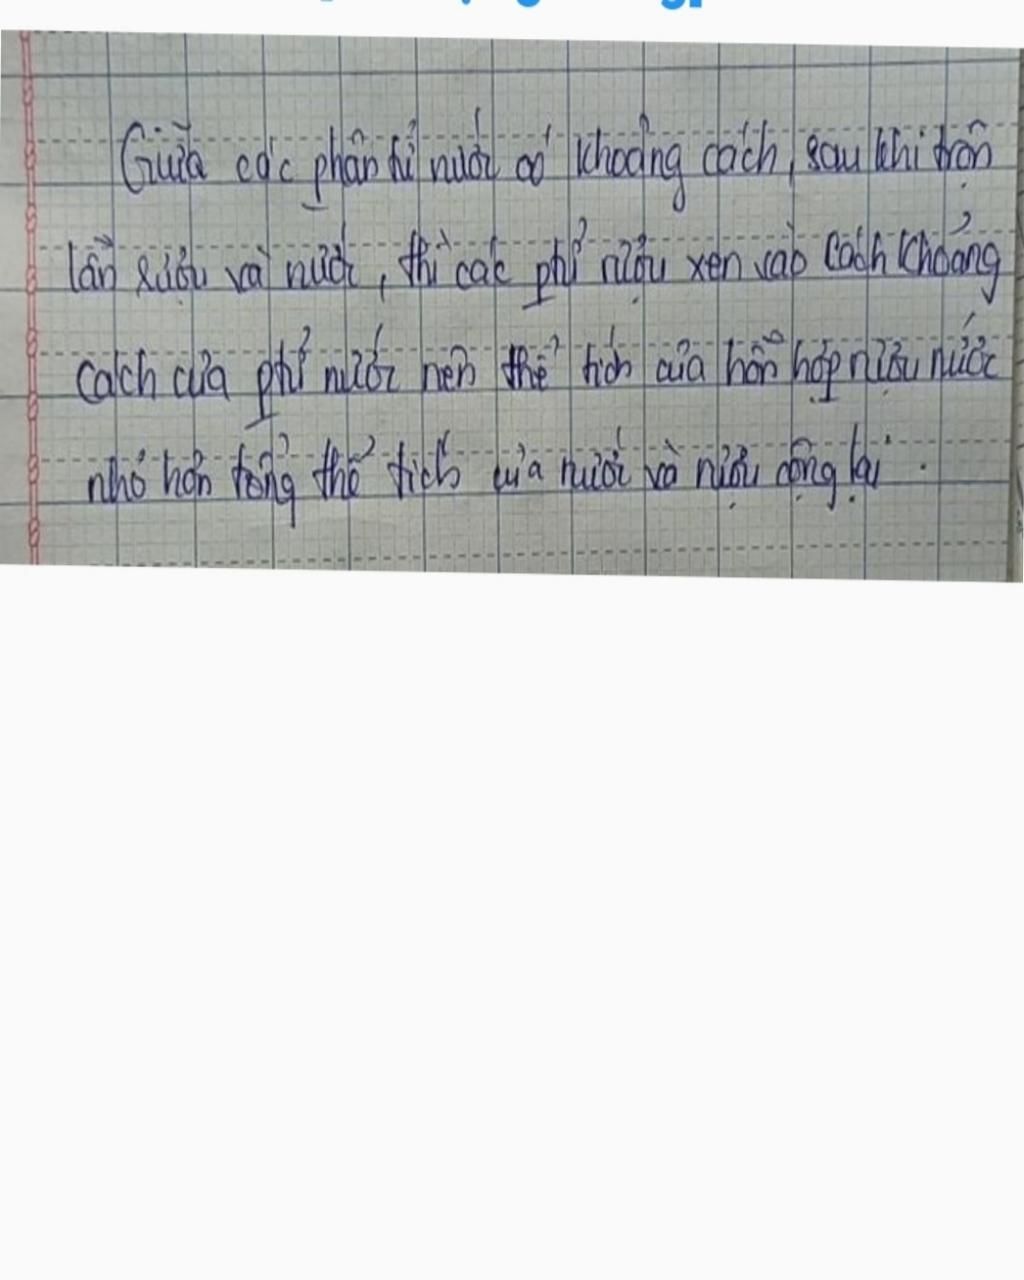 Giữa các phân tử nước có khoảng cách, sau khi trộn
lẫn rượu và nước, thì các ptử rượu xen vào cách khoảng
cách của ptử nước nên thể tích của hỗn hợp rượu nước
nhỏ hơn tổng thể tích của nước và rượu cộng lại.